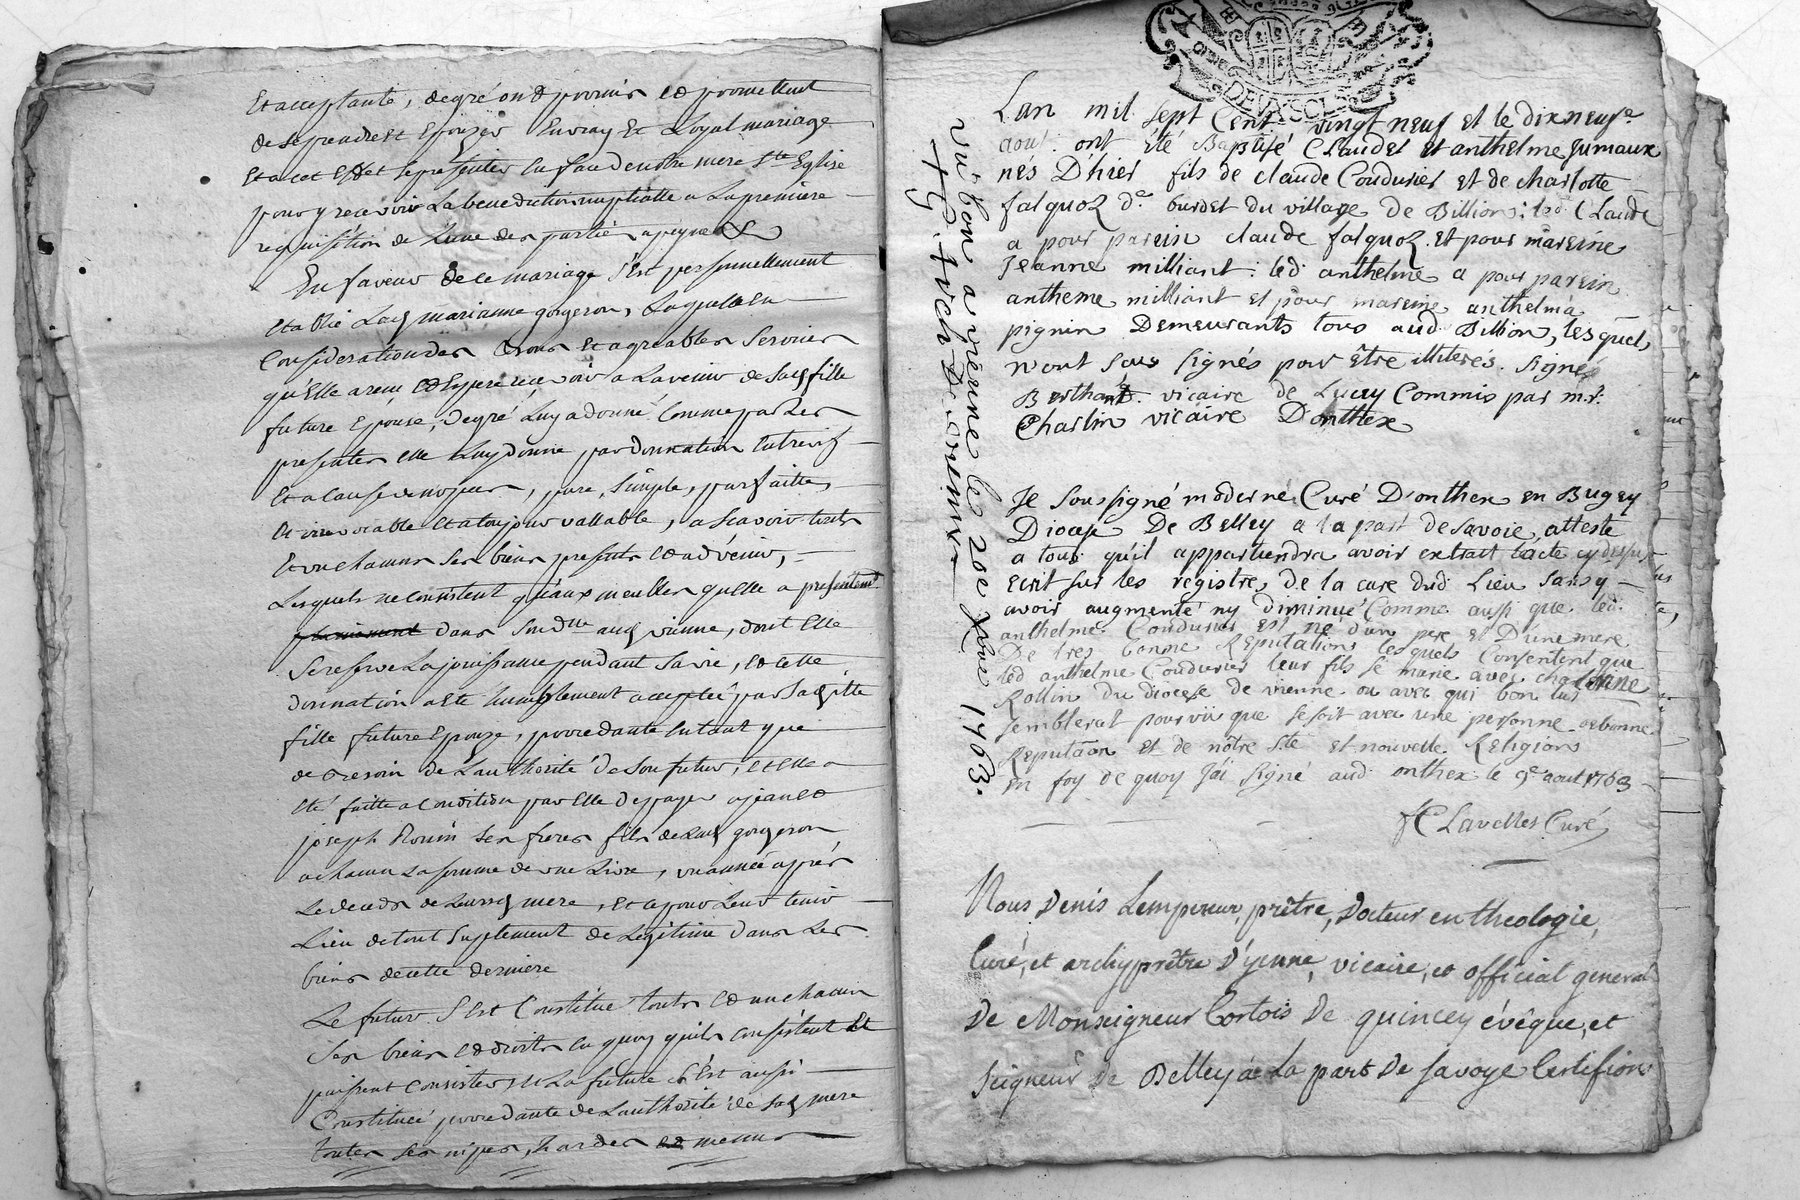 Et acceptante, degré ont promis et promettent
de se prendre et Epouzer En vray Et Loyal mariage
Et a cet Effet se presenter En face de notre mere Ste Eglise
pour y recevoir La benediction nuptialle a La premiere
requisition de L'une des parties a peyne &
En faveur de ce mariage s'Est personnellement
Etablie Lad marianne gorgeron, Laquelle En
Consideration des bons Et agreables Services
qu'Elle a reçu et Espere recevoir a L'avenir de sad fille
future Epouse, de gré Luy a donné Comme par Les
presentes elle Luy donne par donnation Entrevifs
Et a Cause de nopces, pure, Simple, parfaitte,
Et irrevocable Et a toujour vallable, a Scavoir touts
Et un chacuns Ses biens presents et advenir,
Lesquels ne consistent qu'aux meubles qu'elle a presentement
dans Sond aud vienne, dont Elle
Se reserve La jouissance pendant Sa vie, et cette
donnation a Eté humblement acceptée par Sad
fille future Epouze, procedante Entant que
de besoin de L'authorité de Son futur, Et Elle a
Eté faitte a Condition par Elle de payer a jean et
joseph Rouin Ses freres fils de Lad gorgeron
a chacun La somme de une Livre, un année après
Le deceds de Leur mere, Et ce pour Leur tenir
Lieu de tout Suplement de Legitime dans Les
biens de cette derniere
Le futur S'Est Constitué touts et un chacun
Ses biens et droits En quoy qu'ils consistent Et
puissent consister, Et La future S'Est aussi
Constituée procedante de L'authorité de Sad mere
toutes Ses nipes, hardes et menus
DEUX SOLS
Lan mil sept Cent vingt neuf et le dix neuf e
aout ont été Baptisé Claudes et anthelme Jumaux
nés D'hier fils de claude Coudurier et de charlotte
falquoz de burdet du village de Billion: led Claude
a pour parein claude falquoz et pour mareine
Jeanne milliant: led anthelme a pour parein
antheme milliant et pour mareine anthelma
pignin Demeurants tous aud Billion, lesquels
n'ont sous signés pour être illiterés. signé
Berthand vicaire de Lucey Commis par mr.
Charlin vicaire D'onthex
vu bon a vienne le 20e xbre 1763.
Je soussigné moderne Curé D'onthex en Bugey
Diocese De Belley a la part de savoie, atteste
a tous qu'il appartiendra avoir extrait l'acte cy dessus
ecrit sur les registres de la cure dud Lieu sans y
avoir augmenté ny diminué Comme aussi que led.
anthelme Coudurier est né d'un pere et D'une mere
De tres bonne Reputation lesquels Consentent que
led anthelme Coudurier leur fils se marie avec
Rollin du diocese de vienne ou avec qui bon lui
semblerat pourvû que se soit avec une personne de bonne
Reputaon et de nôtre Ste et nouvelle Religion
en foy de quoy J'ai signé aud onthex le 9e aout 1763
Lavelles Curé
Nous Denis Lempereur, prêtre, Docteur en theologie,
Curé, et archyprêtre d'yenne, vicaire, et official general
De Monseigneur Cortois De quincey évêque, et
seigneur de Belley à La part De savoye Certifions